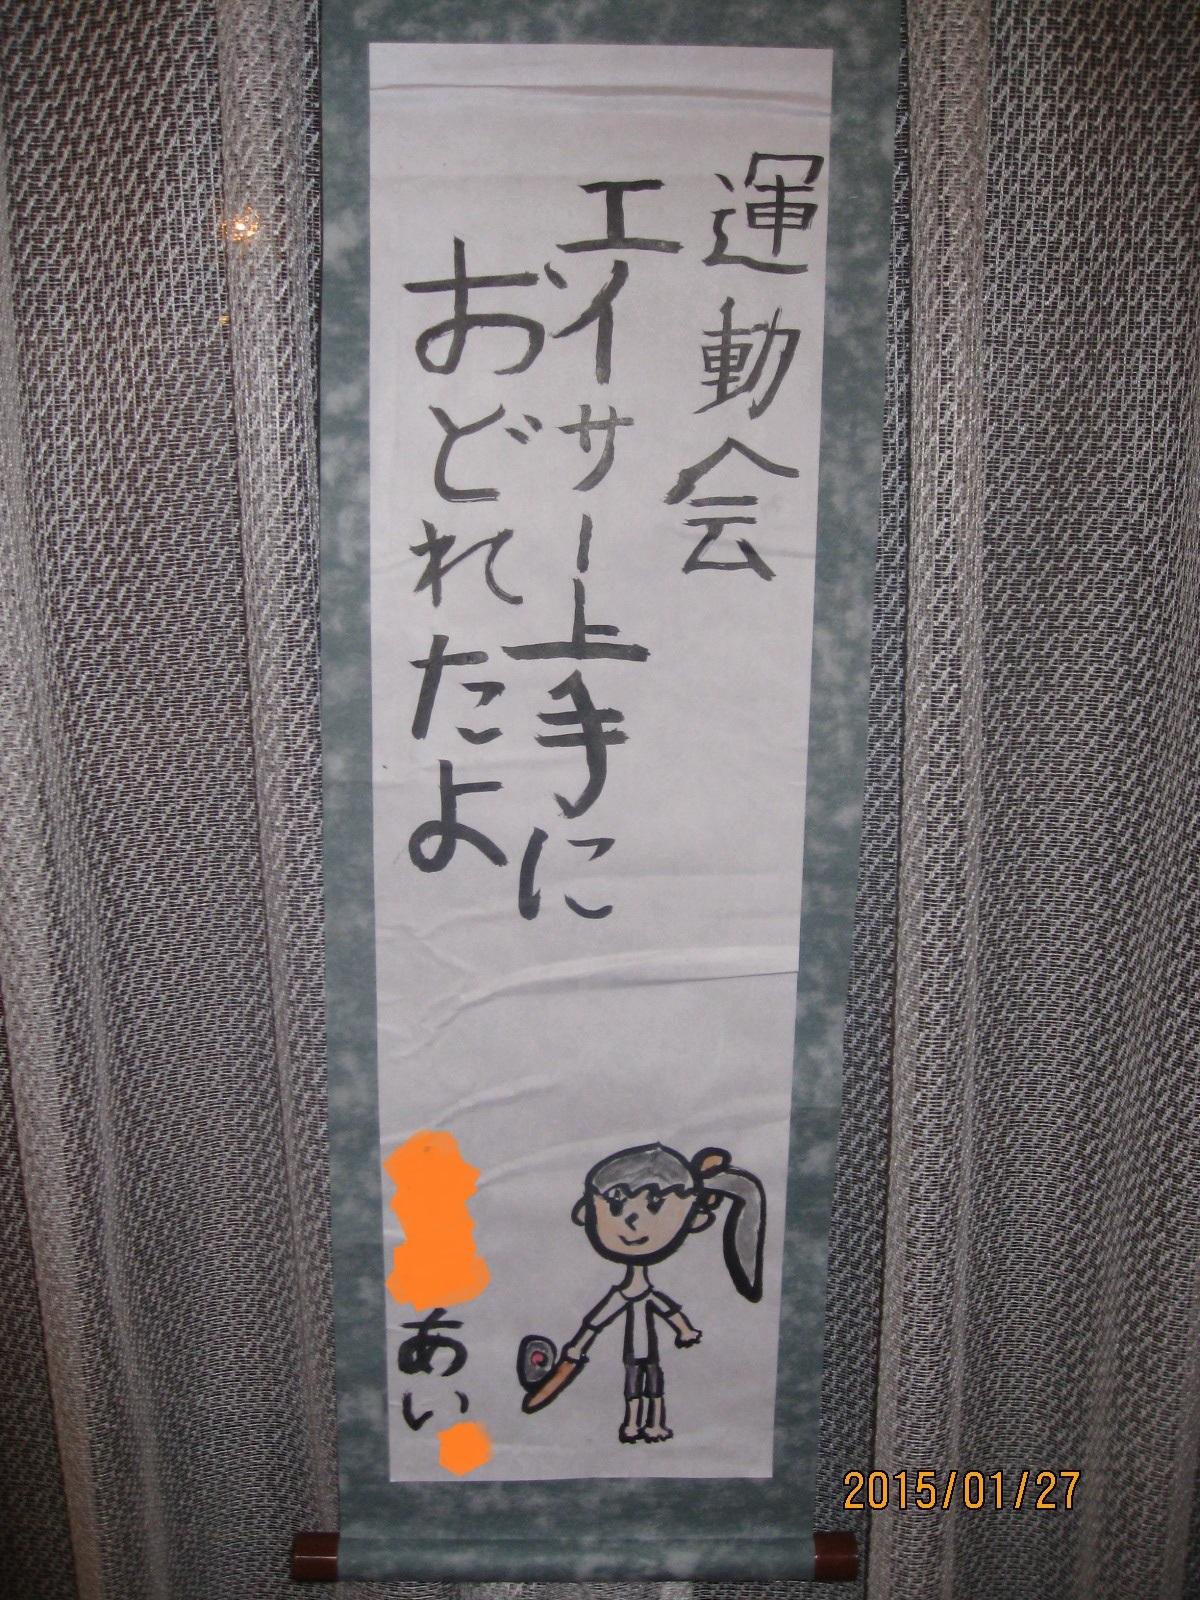 運動会
エイサー上手に
おどれたよ
あい
2015/01/27